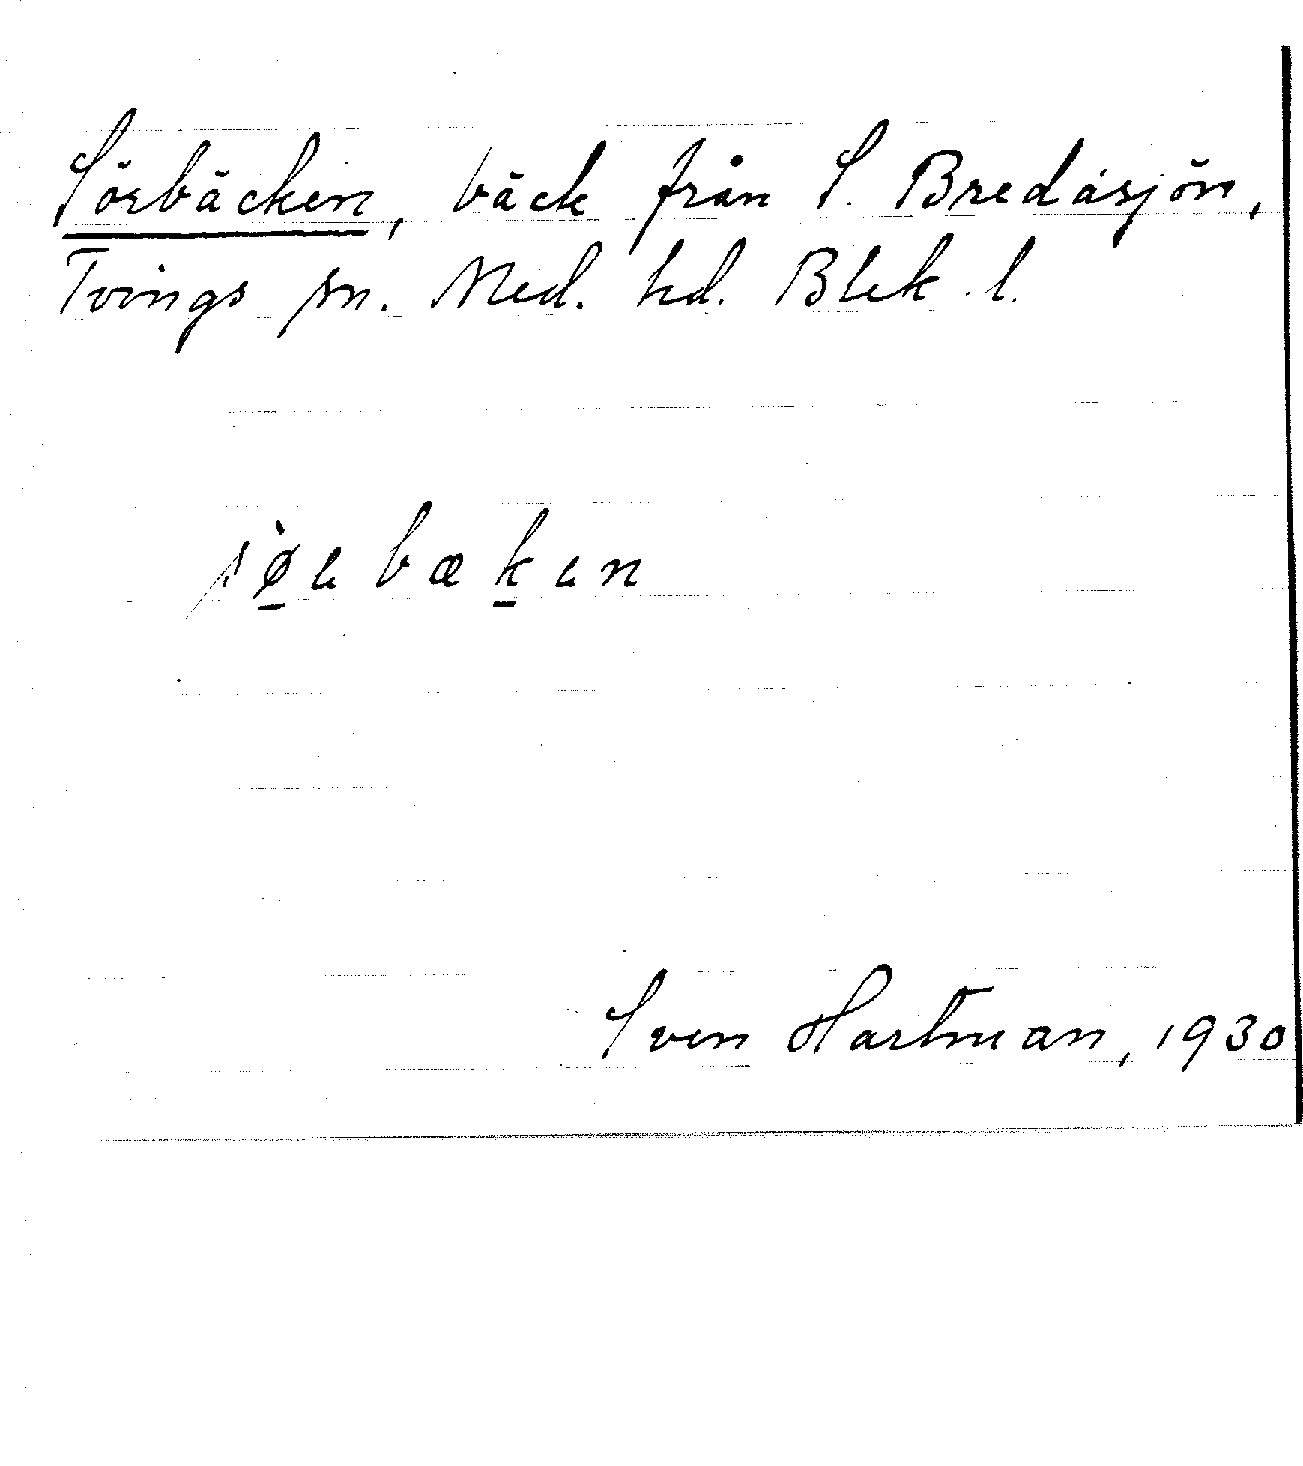 Sörbäcken, bäck från S. Bredåsjön,
Tvings sn. Med. hd. Blek. l.
Sven Hartman, 1930